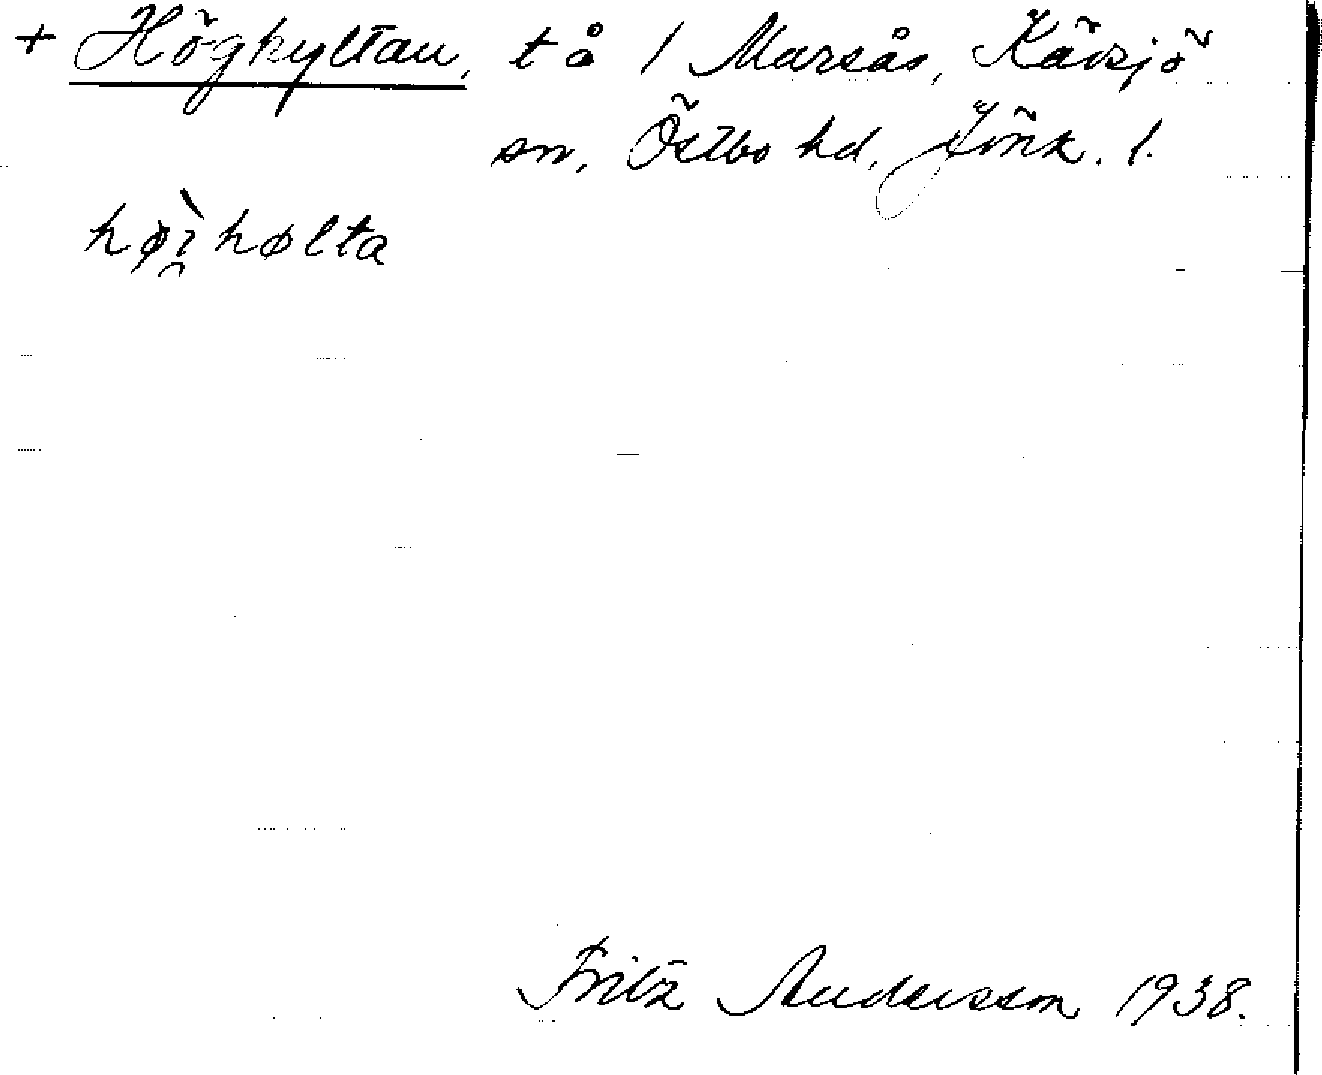 + Högkyltan, tå 1 Marsås, Kävsjö
sn, Östbo hd, Jönk. l.
høì̯hølta
Fritz Andersson 1938.